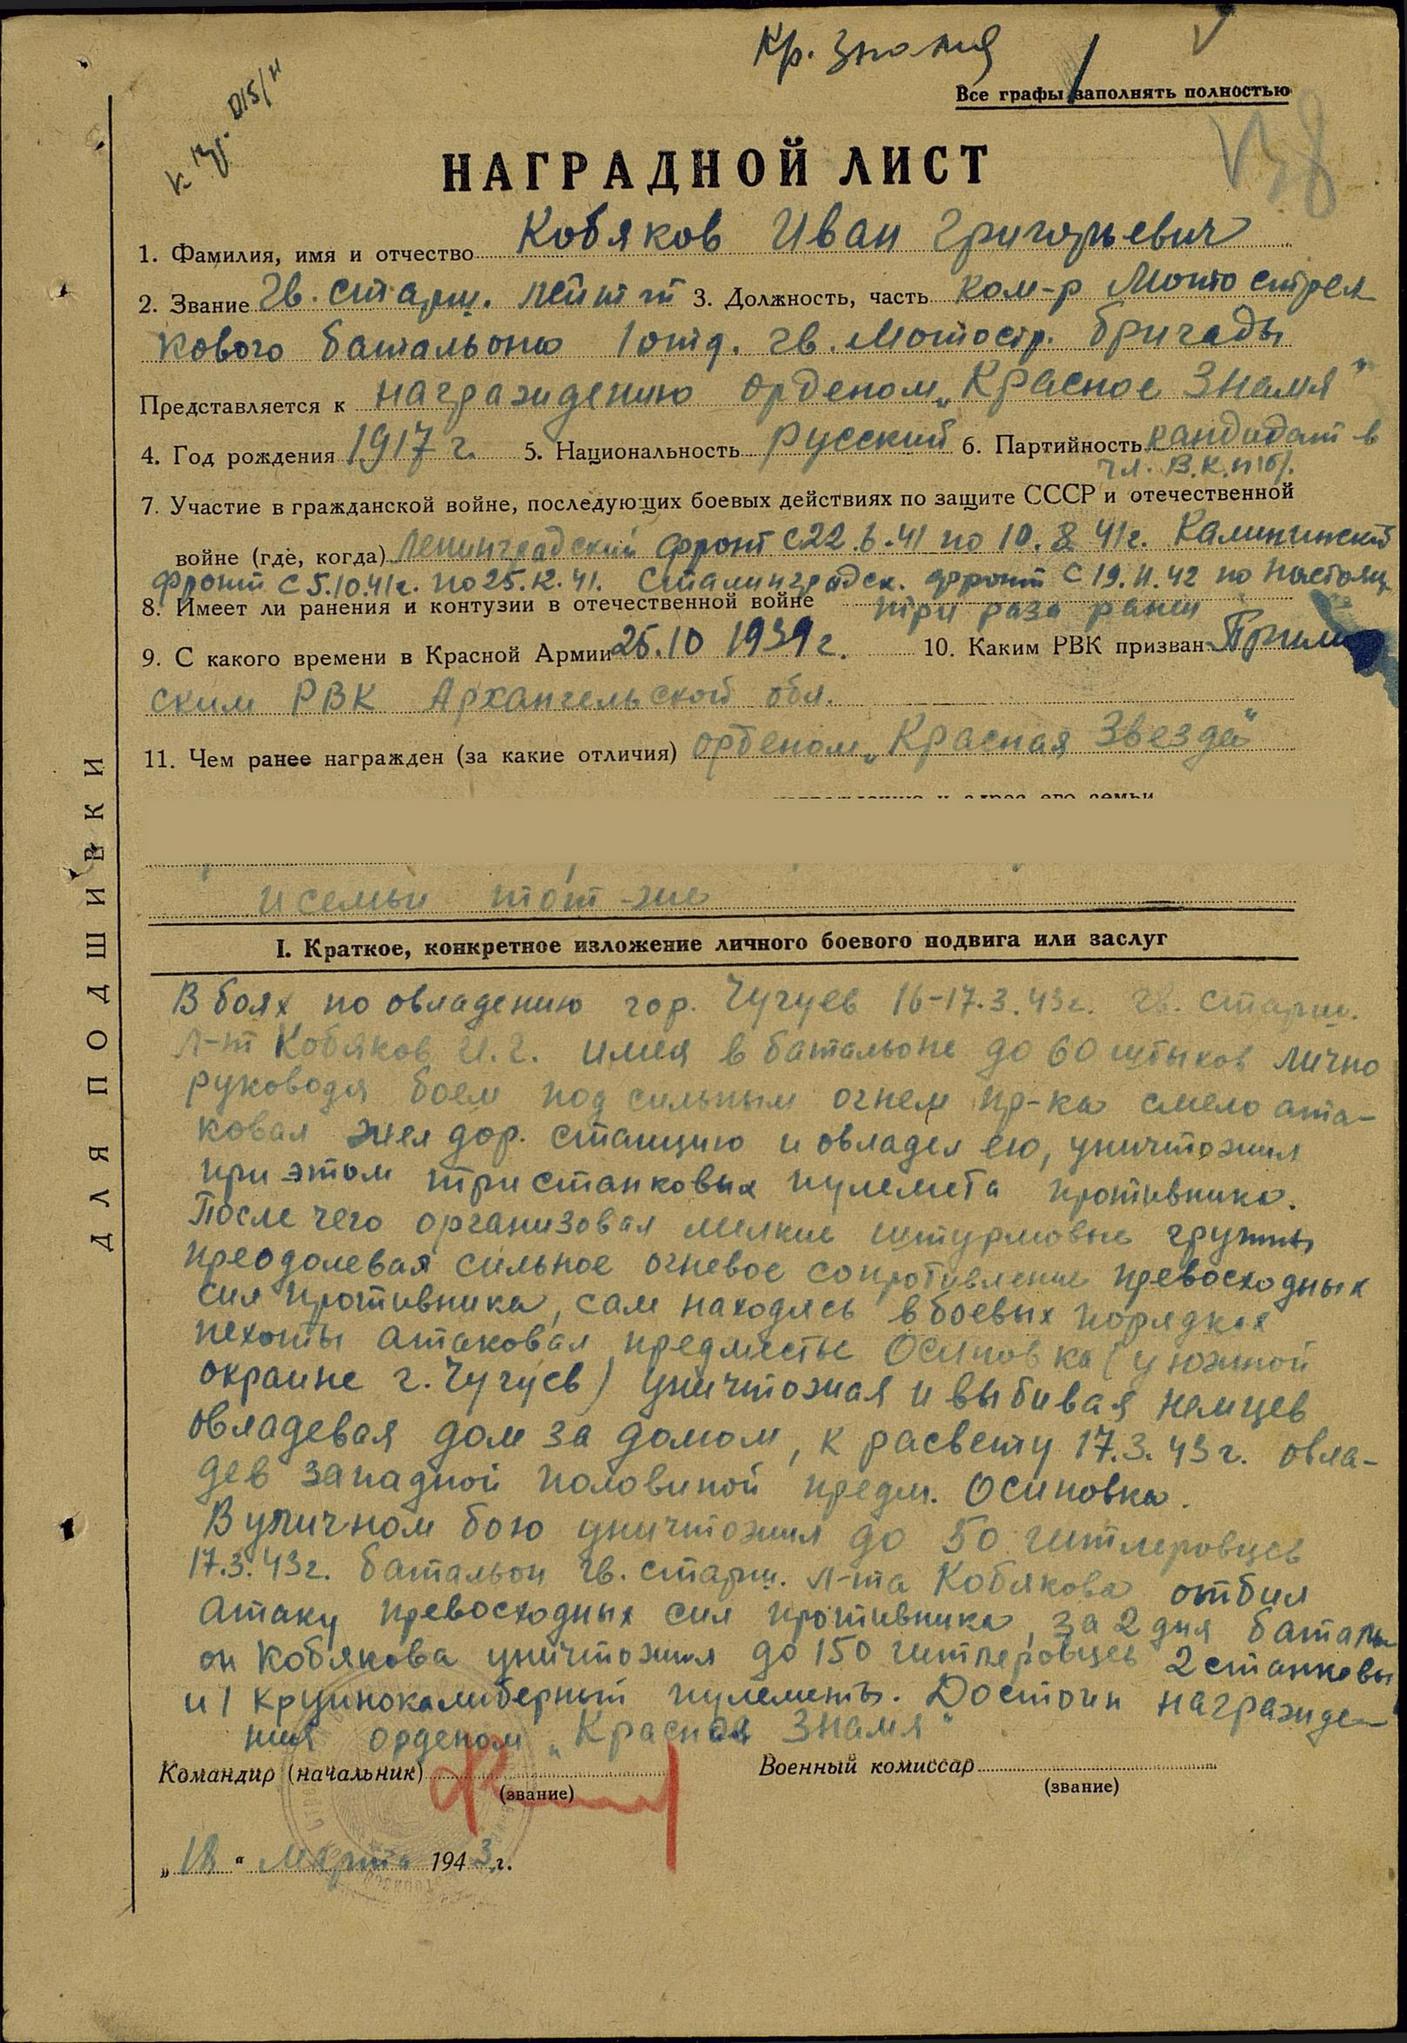 Кр. Знамя
Все графы заполнять полностью
к пр. 015/н
НАГРАДНОЙ ЛИСТ
1. Фамилия, имя и отчество Кобяков Иван Григорьевич
2. Звание гв. старш. лейт-т 3. Должность, часть ком-р Мотострел
кового батальона 1 отд. гв. Мотостр. бригады
Представляется к награждению орденом „Красное Знамя"
4. Год рождения 1917 г. 5. Национальность русский 6. Партийность кандидат в
чл. В.К.П(б).
7. Участие в гражданской войне, последующих боевых действиях по защите СССР и отечественной
войне (где, когда) Ленинградский фронт с 22.6.41 по 10.8.41г. Калининский
фронт с 5.10.41г. по 25.12.41. Сталинградск. фронт с 19.11.42 по настоящ
8. Имеет ли ранения и контузии в отечественной войне три раза ранен
9. С какого времени в Красной Армии 25.10 1939 г. 10. Каким РВК призван
ским РВК Архангельской обл.
11. Чем ранее награжден (за какие отличия) орденом „Красная Звезда"
и семьи тот-же
I. Краткое, конкретное изложение личного боевого подвига или заслуг
В боях по овладению гор. Чугуев 16-17.3.43г. гв. старш.
Л-т Кобяков И.Г. имея в батальоне до 60 штыков лично
руководя боем под сильным огнем пр-ка смело ата-
ковал жел дор. станцию и овладел ею, уничтожил
при этом три станковых пулемета противника.
После чего организовал мелкие штурмовые группы
преодолевая сильное огневое сопротивление превосходных
сил противника, сам находясь в боевых порядках
пехоты атаковал предместье Осиновка (у южной
окраине г. Чугуев) уничтожая и выбивая немцев
овладевая дом за домом, к расвету 17.3.43г. овла-
дев западной половиной предм. Осиновка.
В уличном бою уничтожил до 50 гитлеровцев
17.3.43г. батальон гв. старш. л-та Кобякова отбил
атаку превосходных сил противника, за 2 дня баталь
он Кобякова уничтожил до 150 гитлеровцев 2 станковы
и 1 крупнокалиберный пулеметы. Достоин награжде-
ния орденом „Красная Знамя"
Командир (начальник) Военный комиссар
(звание) (звание)
„18" Марта 1943 г.
ДЛЯ ПОДШИВКИ